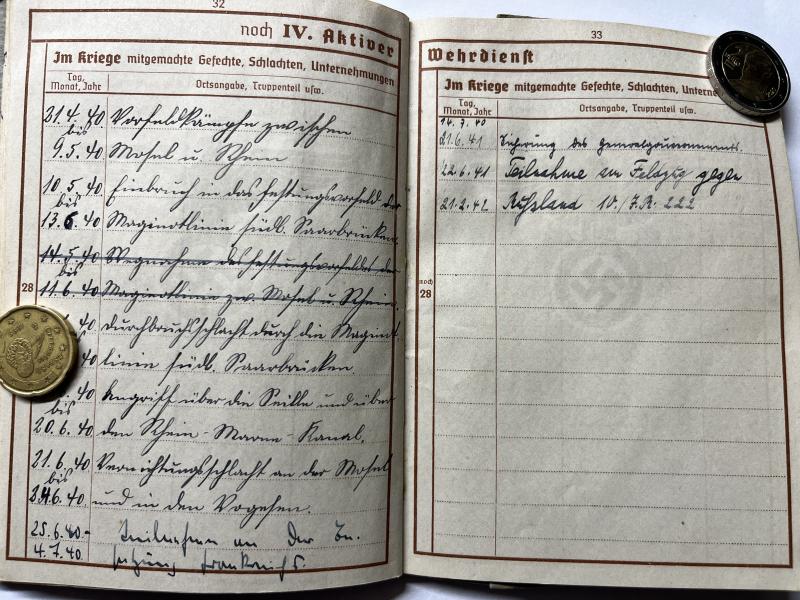 32
noch IV. Aktiver
Im Kriege mitgemachte Gefechte, Schlachten, Unternehmungen
Tag, Monat, Jahr
Ortsangabe, Truppenteil usw.
21.4.40 Vorfeldkämpfe zwischen
bis
9.5.40 Mosel u. Rhein
10.5.40 Einbruch in das Festungsvorfeld der
bis
13.6.40 Maginotlinie südl. Saarbrücken
14.5.40 Wegnahme des Festungsvorfeldes der
bis
28
11.6.40 Maginotlinie zw. Mosel u. Rhein.
40 Durchbruchsschlacht durch die Maginot-
40 linie südl. Saarbrücken
40 Angriff über die Seille und über
bis
20.6.40 den Rhein-Marne-Kanal.
21.6.40 Vernichtungsschlacht an der Mosel
bis
24.6.40 und in den Vogesen.
25.6.40- Teilnahme an der Be-
4.7.40 setzung Frankreichs.
33
Wehrdienst
Im Kriege mitgemachte Gefechte, Schlachten, Unterne
Tag, Monat, Jahr
Ortsangabe, Truppenteil usw.
14.7.40
21.6.41 Sicherung des Generalgouvernements.
22.6.41 Teilnahme am Feldzug gegen
21.2.42 Rußland 10./J.R. 222
noch
28